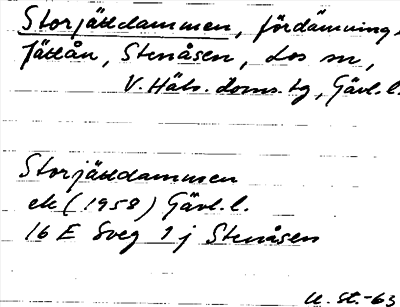 Storjättdammen, fördämning i
Jättån, Stenåsen, Los sn,
V. Häls. doms. tg, Gävl. l.
Storjättdammen
ek (1958) Gävl. l.
16 E Sveg 1 j Stenåsen
U. St. -63